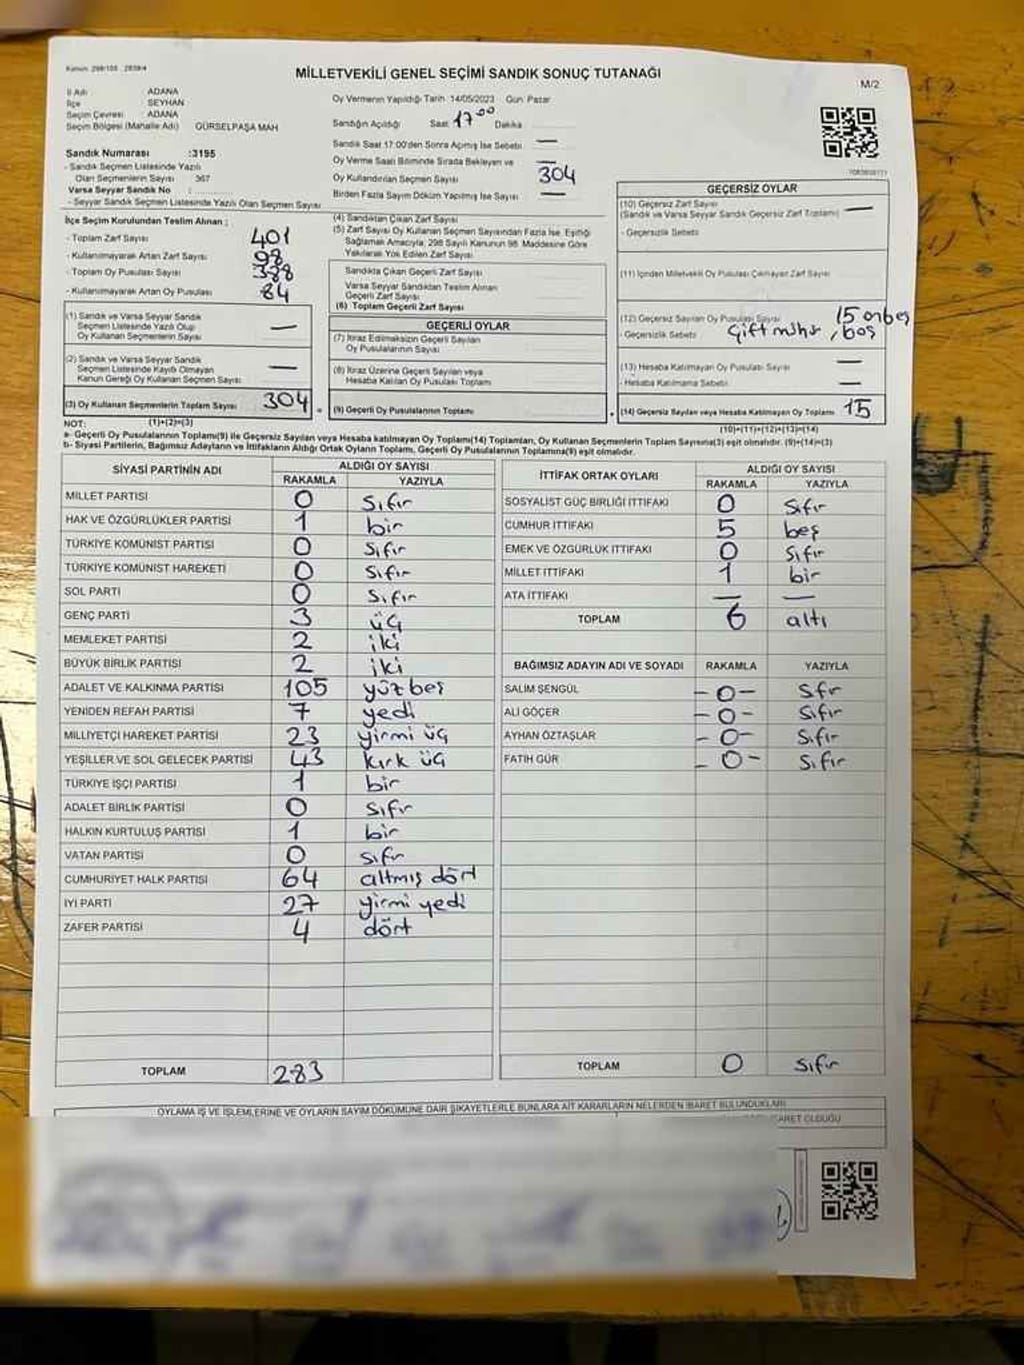 Kanun: 298/105 , 2839/4
MİLLETVEKİLİ GENEL SEÇİMİ SANDIK SONUÇ TUTANAĞI
M/2
İl Adı : ADANA
İlçe : SEYHAN
Seçim Çevresi : ADANA
Seçim Bölgesi (Mahalle Adı) GÜRSELPAŞA MAH
Sandık Numarası :3195
- Sandık Seçmen Listesinde Yazılı
Olan Seçmenlerin Sayısı 367
Varsa Seyyar Sandık No :
- Seyyar Sandık Seçmen Listesinde Yazılı Olan Seçmen Sayısı
Oy Vermenin Yapıldığı Tarih 14/05/2023 Gün: Pazar
Sandığın Açıldığı Saat 17.00 Dakika
Sandık Saat 17:00'den Sonra Açılmış İse Sebebi —
Oy Verme Saati Bitiminde Sırada Bekleyen ve —
Oy Kullandırılan Seçmen Sayısı 304
Birden Fazla Sayım Döküm Yapılmış İse Sayısı —
İlçe Seçim Kurulundan Teslim Alınan :
- Toplam Zarf Sayısı 401
- Kullanılmayarak Artan Zarf Sayısı 98
- Toplam Oy Pusulası Sayısı 388
- Kullanılmayarak Artan Oy Pusulası 84
(1) Sandık ve Varsa Seyyar Sandık
Seçmen Listesinde Yazılı Olup
Oy Kullanan Seçmenlerin Sayısı —
(2) Sandık ve Varsa Seyyar Sandık
Seçmen Listesinde Kayıtlı Olmayan
Kanun Gereği Oy Kullanan Seçmen Sayısı —
(3) Oy Kullanan Seçmenlerin Toplam Sayısı 304
(1)+(2)=(3)
(4) Sandıktan Çıkan Zarf Sayısı
(5) Zarf Sayısı Oy Kullanan Seçmen Sayısından Fazla İse, Eşitliği
Sağlamak Amacıyla, 298 Sayılı Kanunun 98. Maddesine Göre
Yakılarak Yok Edilen Zarf Sayısı
Sandıkta Çıkan Geçerli Zarf Sayısı
Varsa Seyyar Sandıktan Teslim Alınan
Geçerli Zarf Sayısı
(6) Toplam Geçerli Zarf Sayısı
GEÇERLİ OYLAR
(7) İtiraz Edilmeksizin Geçerli Sayılan
Oy Pusulalarının Sayısı
(8) İtiraz Üzerine Geçerli Sayılan veya
Hesaba Katılan Oy Pusulası Toplamı
(9) Geçerli Oy Pusulalarının Toplamı
GEÇERSİZ OYLAR
(10) Geçersiz Zarf Sayısı
(Sandık ve Varsa Seyyar Sandık Geçersiz Zarf Toplamı) —
- Geçersizlik Sebebi
(11) İçinden Milletvekili Oy Pusulası Çıkmayan Zarf Sayısı
(12) Geçersiz Sayılan Oy Pusulası Sayısı 15 onbeş
- Geçersizlik Sebebi Çift mühür, boş
(13) Hesaba Katılmayan Oy Pusulası Sayısı —
- Hesaba Katılmama Sebebi —
(14) Geçersiz Sayılan veya Hesaba Katılmayan Oy Toplamı 15
(10)+(11)+(12)+(13)=(14)
NOT:
a- Geçerli Oy Pusulalarının Toplamı(9) ile Geçersiz Sayılan veya Hesaba katılmayan Oy Toplamı(14) Toplamları, Oy Kullanan Seçmenlerin Toplam Sayısına(3) eşit olmalıdır. (9)+(14)=(3)
b- Siyasi Partilerin, Bağımsız Adayların ve İttifakların Aldığı Ortak Oyların Toplamı, Geçerli Oy Pusulalarının Toplamına(9) eşit olmalıdır.
SİYASİ PARTİNİN ADI ALDIĞI OY SAYISI
RAKAMLA YAZIYLA
MİLLET PARTİSİ 0 Sıfır
HAK VE ÖZGÜRLÜKLER PARTİSİ 1 bir
TÜRKİYE KOMÜNİST PARTİSİ 0 Sıfır
TÜRKİYE KOMÜNİST HAREKETİ 0 Sıfır
SOL PARTİ 0 Sıfır
GENÇ PARTİ 3 üç
MEMLEKET PARTİSİ 2 iki
BÜYÜK BİRLİK PARTİSİ 2 iki
ADALET VE KALKINMA PARTİSİ 105 yüzbeş
YENİDEN REFAH PARTİSİ 7 yedi
MİLLİYETÇİ HAREKET PARTİSİ 23 yirmi üç
YEŞİLLER VE SOL GELECEK PARTİSİ 43 kırk üç
TÜRKİYE İŞÇİ PARTİSİ 1 bir
ADALET BİRLİK PARTİSİ 0 Sıfır
HALKIN KURTULUŞ PARTİSİ 1 bir
VATAN PARTİSİ 0 sıfır
CUMHURİYET HALK PARTİSİ 64 altmış dört
İYİ PARTİ 27 yirmi yedi
ZAFER PARTİSİ 4 dört
TOPLAM 283
İTTİFAK ORTAK OYLARI ALDIĞI OY SAYISI
RAKAMLA YAZIYLA
SOSYALİST GÜÇ BİRLİĞİ İTTİFAKI 0 Sıfır
CUMHUR İTTİFAKI 5 beş
EMEK VE ÖZGÜRLÜK İTTİFAKI 0 Sıfır
MİLLET İTTİFAKI 1 bir
ATA İTTİFAKI — —
TOPLAM 6 altı
BAĞIMSIZ ADAYIN ADI VE SOYADI RAKAMLA YAZIYLA
SALİM ŞENGÜL -0- Sıfır
ALİ GÖÇER -0- Sıfır
AYHAN ÖZTAŞLAR -0- Sıfır
FATİH GÜR -0- Sıfır
TOPLAM 0 Sıfır
OYLAMA İŞ VE İŞLEMLERİNE VE OYLARIN SAYIM DÖKÜMÜNE DAİR ŞİKAYETLERLE BUNLARA AİT KARARLARIN NELERDEN İBARET BULUNDUKLARI
İBARET OLDUĞU